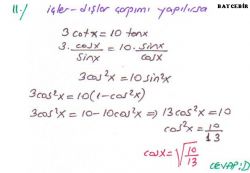 11-/ içler-dışlar çarpımı yapılırsa
BAYCEBİR
3cotx=10tanx
3. cosx/sinx = 10. sinx/cosx
3cos²x=10sin²x
3cos²x=10(1-cos²x)
3cos²x=10-10cos²x ⇒ 13cos²x=10
cos²x=10/13
cosx=√10/13
CEVAP:D